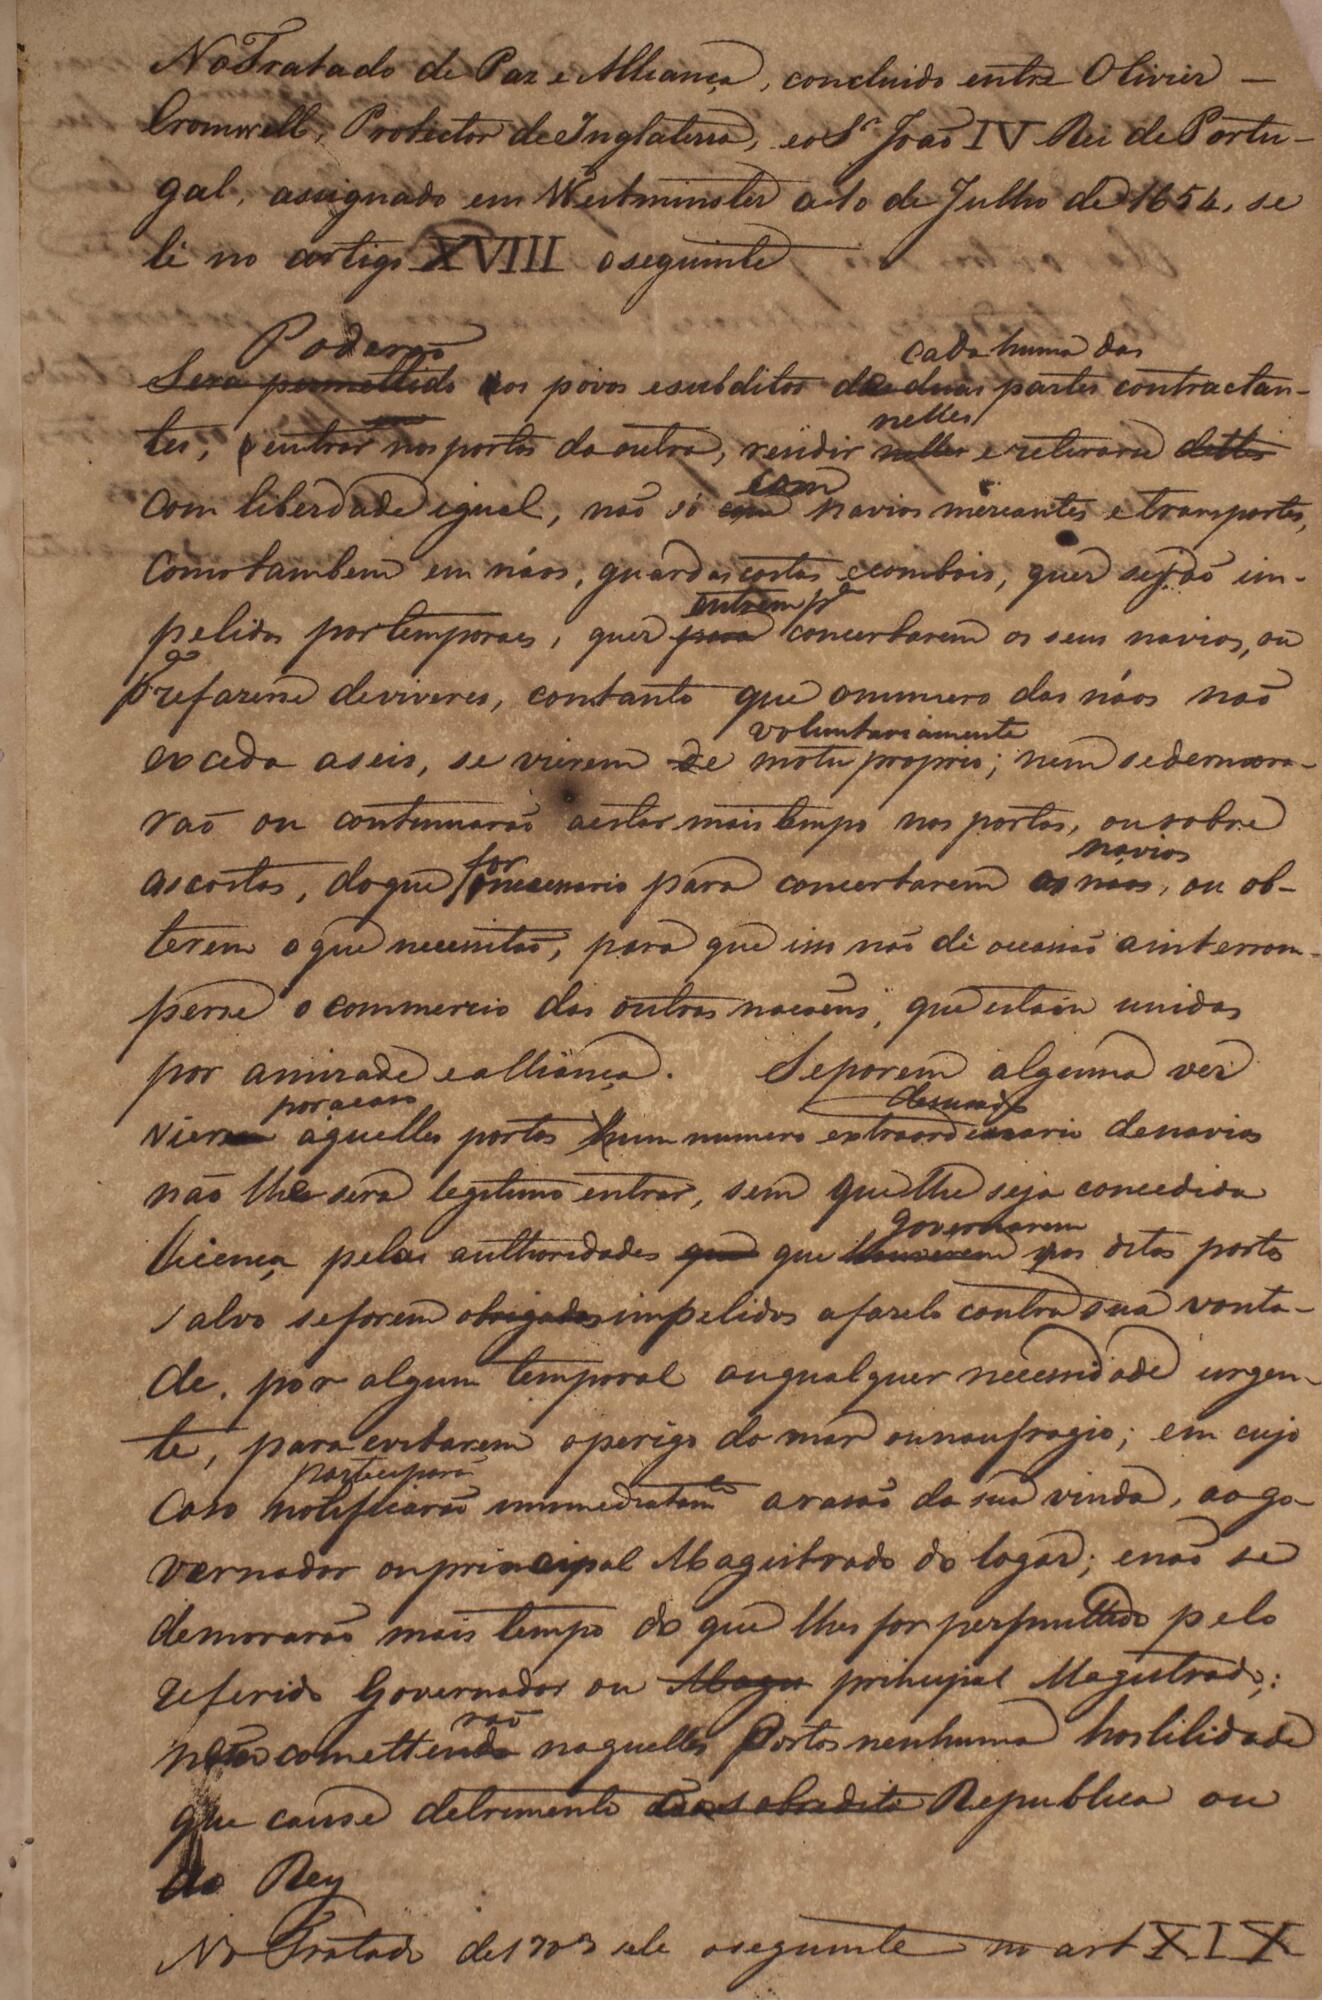 No Tratado de Paz e Alliança, concluido entre Olivier —
Cromwell, Protector de Inglaterra, e o Sr João IV Rei de Portu-
gal, assignado em Westminster a 10 de Julho de 1654, se
lê no artigo XVIII o seguinte
Poderão cada huma das
Sera permettido aos povos e subditos das duas partes contractan-
nelles
tes, entrar nos portos da outra, residir nelles e retirarse delles
com
com liberdade igual, não só com navios mercantes e transportes,
como tambem em náos, guardas costas e combois, quer sejão im-
entrem pª
pelidos por temporaes, quer para concertarem os seus navios, ou
pª refazerse de viveres, contanto que o numero das náos não
voluntariamente
exceda a seis, se vierem de motu proprio; nem se demora-
rão ou continuarão a estar mais tempo nos portos, ou sobre
for navios
as costas, do que necessario para concertarem as náos, ou ob-
terem o que necessitão, para que isso não dê occasião a interrom-
perse o commercio das outras nacoens, que estain unidas
por amizade e alliança. Se porem alguma vez
por acaso desusado
vierem áquelles portos hum numero extraordinario de navios
não lhes sera legitimo entrar, sem que lhe seja concedida
governarem
licença pelas authoridades que que houverem nos ditos portos
salvo se forem obrigados impelidos a fazelo contra sua vonta-
de, por algum temporal ou qualquer necessidade urgen-
te, para evitarem o perigo do mar ou naufragio; em cujo
participarão
caso notificarão immediatamte a rasão da sua vinda, ao go-
vernador ou principal Magistrado do logar; e não se
demorarão mais tempo do que lhes for permittido pelo
referido Governador ou Magis principal Magistrado;
rão
não comettendo naquelles Portos nenhuma hostilidade
que cause detrimento á sobredita Republica ou
do Rey
No Tratado de 1703 se le o seguinte no art XIX